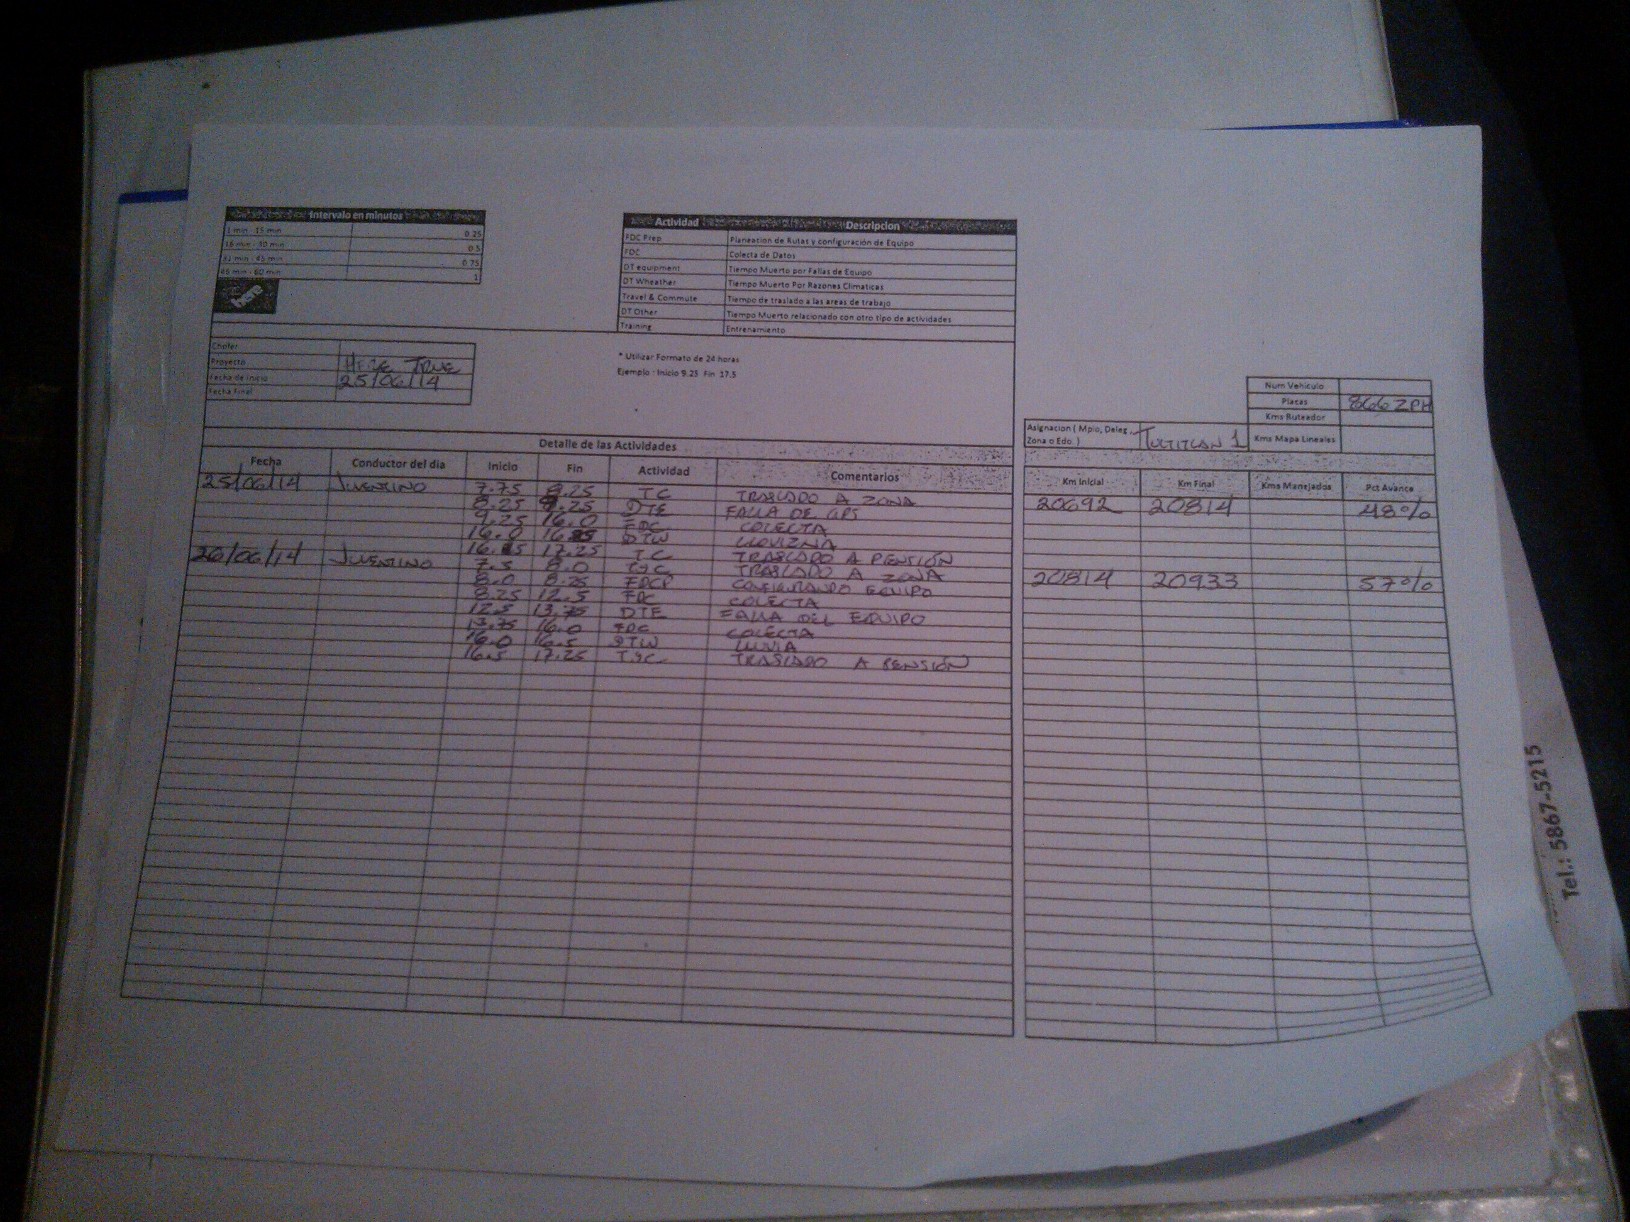 Intervalo en minutos
1 min - 15 min 0.25
16 min - 30 min 0.5
31 min - 45 min 0.75
46 min - 60 min 1
here
Actividad Descripcion
FDC Prep Planeation de Rutas y configuración de Equipo
FDC Colecta de Datos
DT equipment Tiempo Muerto por Fallas de Equipo
DT Wheather Tiempo Muerto Por Razones Climaticas
Travel & Commute Tiempo de traslado a las areas de trabajo
DT Other Tiempo Muerto relacionado con otro tipo de actividades
Training Entrenamiento
Chofer
Proyecto HERE TRUE
Fecha de Inicio 25/06/14
Fecha Final
* Utilizar Formato de 24 horas
Ejemplo : Inicio 9.25 Fin 17.5
Num Vehiculo
Placas 866ZPH
Kms Ruteador
Kms Mapa Lineales
Asignacion ( Mpio, Deleg.,
Zona o Edo. ) TULTITLAN 1
Detalle de las Actividades
Fecha Conductor del dia Inicio Fin Actividad Comentarios Km Inicial Km Final Kms Manejados Pct Avance
25/06/14 JUVENTINO 7.75 8.25 TC TRASLADO A ZONA 20692 20814 48%
8.25 9.25 DTE FALLA DE GPS
9.25 16.0 FDC COLECTA
16.0 DTW LLOVIZNA
17.25 TC TRASLADO A PENSIÓN
26/06/14 JUVENTINO 7.5 8.0 TYC TRASLADO A ZONA 20814 20933 57%
8.0 8.25 FDCP CONFIGURANDO EQUIPO
8.25 12.5 FDC COLECTA
12.5 13.75 DTE FALLA DEL EQUIPO
13.75 16.0 FDC COLECTA
16.0 16.5 DTW LLUVIA
16.5 17.25 TYC TRASLADO A PENSIÓN
Tel.: 5867-5215